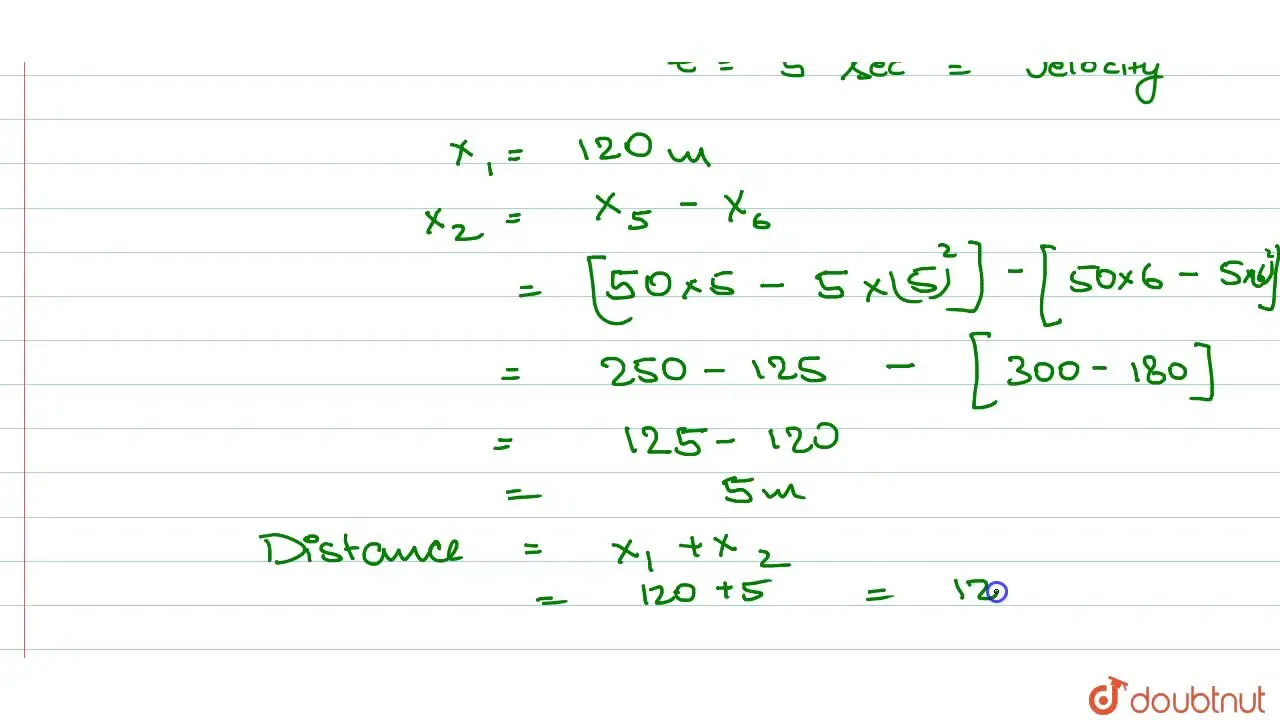 t = 5 sec = velocity
x₁ = 120 m
x₂ = x₅ - x₆
= [50×5 - 5×(5)²] - [50×6 - 5×6)²]
= 250 - 125 - [300 - 180]
= 125 - 120
= 5 m
Distance = x₁ + x₂
= 120 + 5 = 12
doubtnut